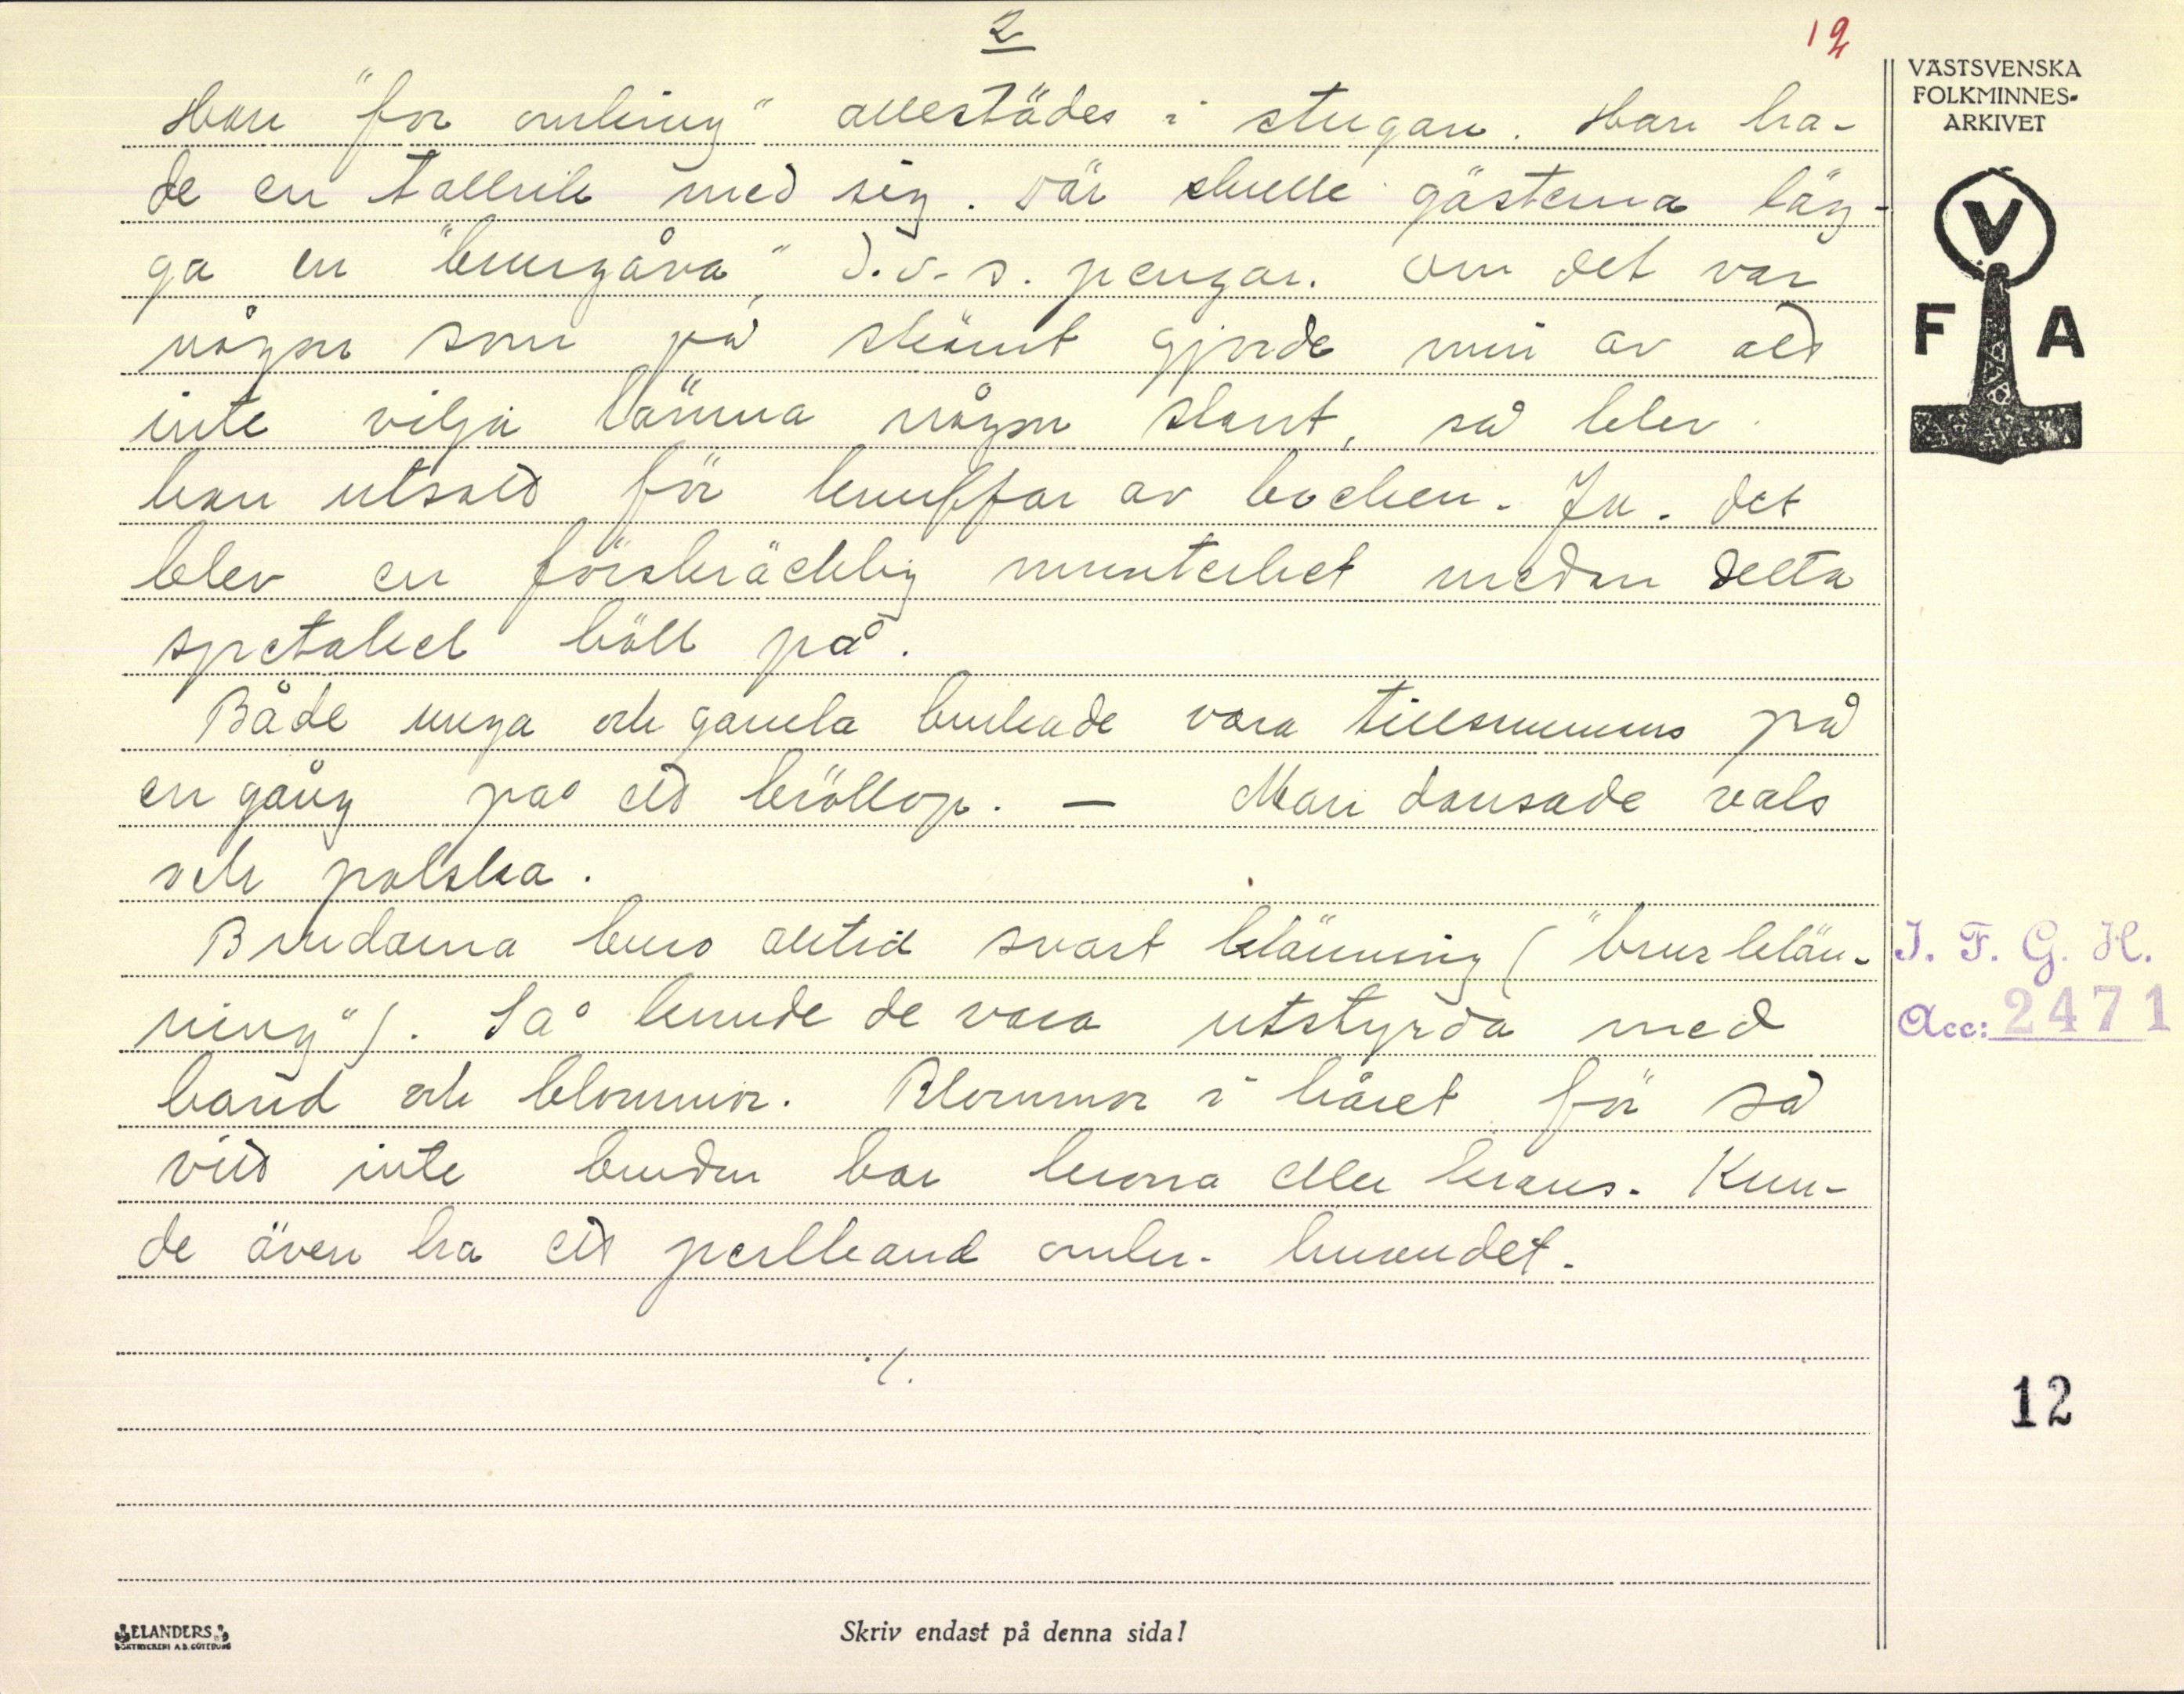 2
12
Han "for omkring" allestädes i stugan. Han ha-
de en tallrik med sig. Där skulle gästerna läg-
ga en "brurgåva", d.v.s. pengar. Om det var
någon som på skämt gjorde min av att
inte vilja lämna någon slant, så blev
han utsatt för knuffar av bocken. Ja. det
blev en förskräcklig munterhet medan detta
spetakel höll på.
Både unga och gamla brukade vara tillsammans på
en gång på ett bröllop. — Man dansade vals
och polska.
Brudarna buro alltid svart klänning ("brurklän-
ning"). Så kunde de vara utstyrda med
band och blommor. Blommor i håret för så
vitt inte bruden bar krona eller krans. Kun-
de även ha ett perlband omkr. huvudet.
./.
VÄSTSVENSKA
FOLKMINNES-
ARKIVET
V
F A
I. F. G. H.
Acc: 2471
12
ELANDERS
BOKTRYCKERI A.B. GÖTEBORG
Skriv endast på denna sida!